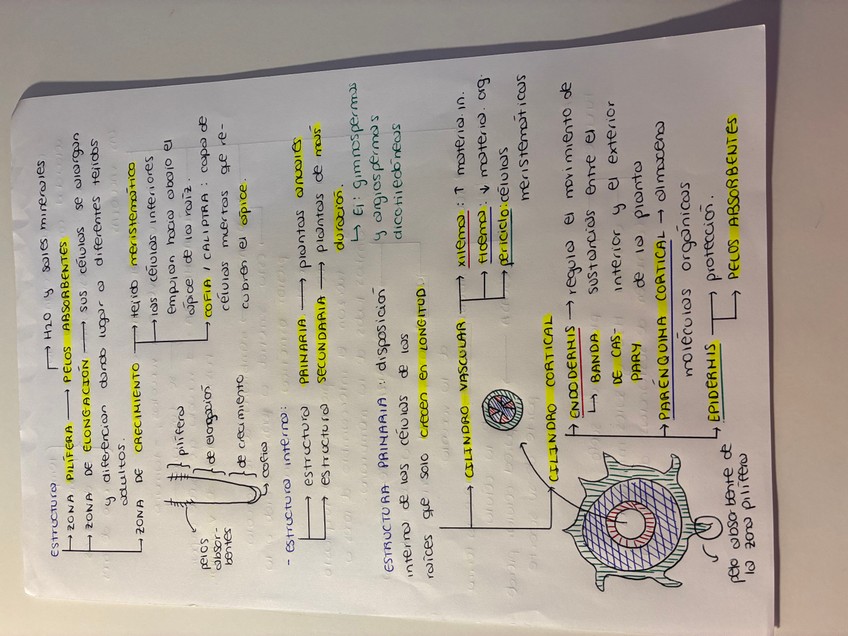 ESTRUCTURA
→ H2O y sales minerales
→ ZONA PILÍFERA → PELOS ABSORBENTES
→ ZONA DE ELONGACIÓN → sus células se alargan
y diferencian dando lugar a diferentes tejidos
adultos.
→ ZONA DE CRECIMIENTO → tejido meristemático
→ las células inferiores
empujan hacia abajo el
ápice de la raíz.
→ COFIA / CALIPTRA: capa de
células muertas que re-
cubren el ápice.
pilífera
de elongación
de crecimiento
cofia
pelos
absor-
bentes
- estructura interna:
→ estructura PRIMARIA → plantas anuales
→ estructura SECUNDARIA → plantas de más
duración.
↳ Ej: gimnospermas
y angiospermas
dicotiledóneas
ESTRUCTURA PRIMARIA: disposición
interna de las células de las
raíces que solo crecen en LONGITUD
→ CILINDRO VASCULAR → xilema: ↑ materia in.
→ floema: ↓ materia org.
→ periciclo: células
meristemáticas
→ CILINDRO CORTICAL
→ ENDODERMIS → regula el movimiento de
↳ BANDA sustancias entre el
DE CAS- interior y el exterior
PARY de la planta
→ PARÉNQUIMA CORTICAL → almacena
moléculas orgánicas
→ EPIDERMIS → protección.
→ PELOS ABSORBENTES
pelo absorbente de
la zona pilífera